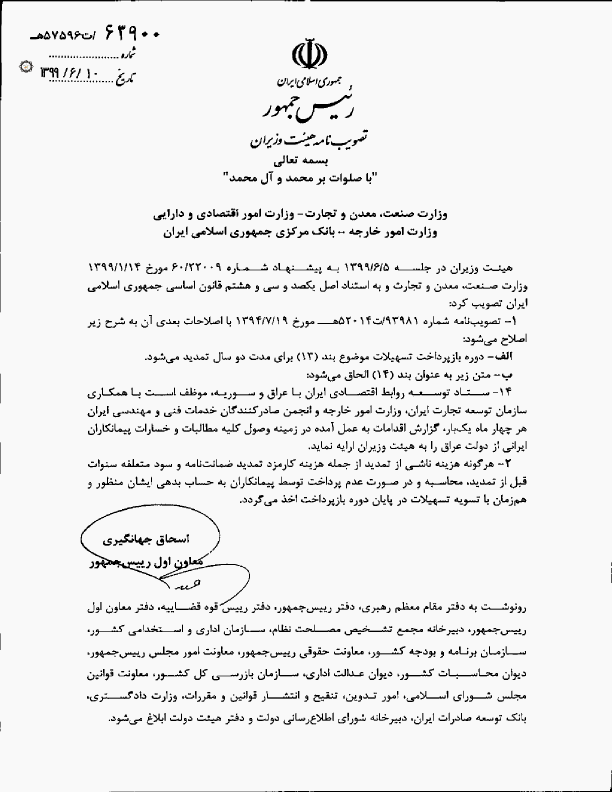 ۶۳۹۰۰ /ت۵۷۵۹۶هـ
شماره
تاریخ ۱۳۹۹/۶/۱۰
جمهوری اسلامی ایران
رئیس جمهور
تصویب نامه هیئت وزیران
بسمه تعالی
"با صلوات بر محمد و آل محمد"
وزارت صنعت، معدن و تجارت- وزارت امور اقتصادی و دارایی
وزارت امور خارجه -- بانک مرکزی جمهوری اسلامی ایران
هیئت وزیران در جلسه ۱۳۹۹/۶/۵ به پیشنهاد شماره ۶۰/۲۲۰۰۹ مورخ ۱۳۹۹/۱/۱۴
وزارت صنعت، معدن و تجارت و به استناد اصل یکصد و سی و هشتم قانون اساسی جمهوری اسلامی
ایران تصویب کرد:
۱- تصویب‌نامه شماره ۹۳۹۸۱/ت۵۲۰۱۴هـ مورخ ۱۳۹۴/۷/۱۹ با اصلاحات بعدی آن به شرح زیر
اصلاح می‌شود:
الف- دوره بازپرداخت تسهیلات موضوع بند (۱۳) برای مدت دو سال تمدید می‌شود.
ب- متن زیر به عنوان بند (۱۴) الحاق می‌شود:
۱۴- ستاد توسعه روابط اقتصادی ایران با عراق و سوریه، موظف است با همکاری
سازمان توسعه تجارت ایران، وزارت امور خارجه و انجمن صادرکنندگان خدمات فنی و مهندسی ایران
هر چهار ماه یک‌بار، گزارش اقدامات به عمل آمده در زمینه وصول کلیه مطالبات و خسارات پیمانکاران
ایرانی از دولت عراق را به هیئت وزیران ارایه نماید.
۲- هرگونه هزینه ناشی از تمدید از جمله هزینه کارمزد تمدید ضمانت‌نامه و سود متعلقه سنوات
قبل از تمدید، محاسبه و در صورت عدم پرداخت توسط پیمانکاران به حساب بدهی ایشان منظور و
هم‌زمان با تسویه تسهیلات در پایان دوره بازپرداخت اخذ می‌گردد.
اسحاق جهانگیری
معاون اول رییس‌جمهور
رونوشت به دفتر مقام معظم رهبری، دفتر رییس‌جمهور، دفتر رییس قوه قضاییه، دفتر معاون اول
رییس‌جمهور، دبیرخانه مجمع تشخیص مصلحت نظام، سازمان اداری و استخدامی کشور،
سازمان برنامه و بودجه کشور، معاونت حقوقی رییس‌جمهور، معاونت امور مجلس رییس‌جمهور،
دیوان محاسبات کشور، دیوان عدالت اداری، سازمان بازرسی کل کشور، معاونت قوانین
مجلس شورای اسلامی، امور تدوین، تنقیح و انتشار قوانین و مقررات، وزارت دادگستری،
بانک توسعه صادرات ایران، دبیرخانه شورای اطلاع‌رسانی دولت و دفتر هیئت دولت ابلاغ می‌شود.